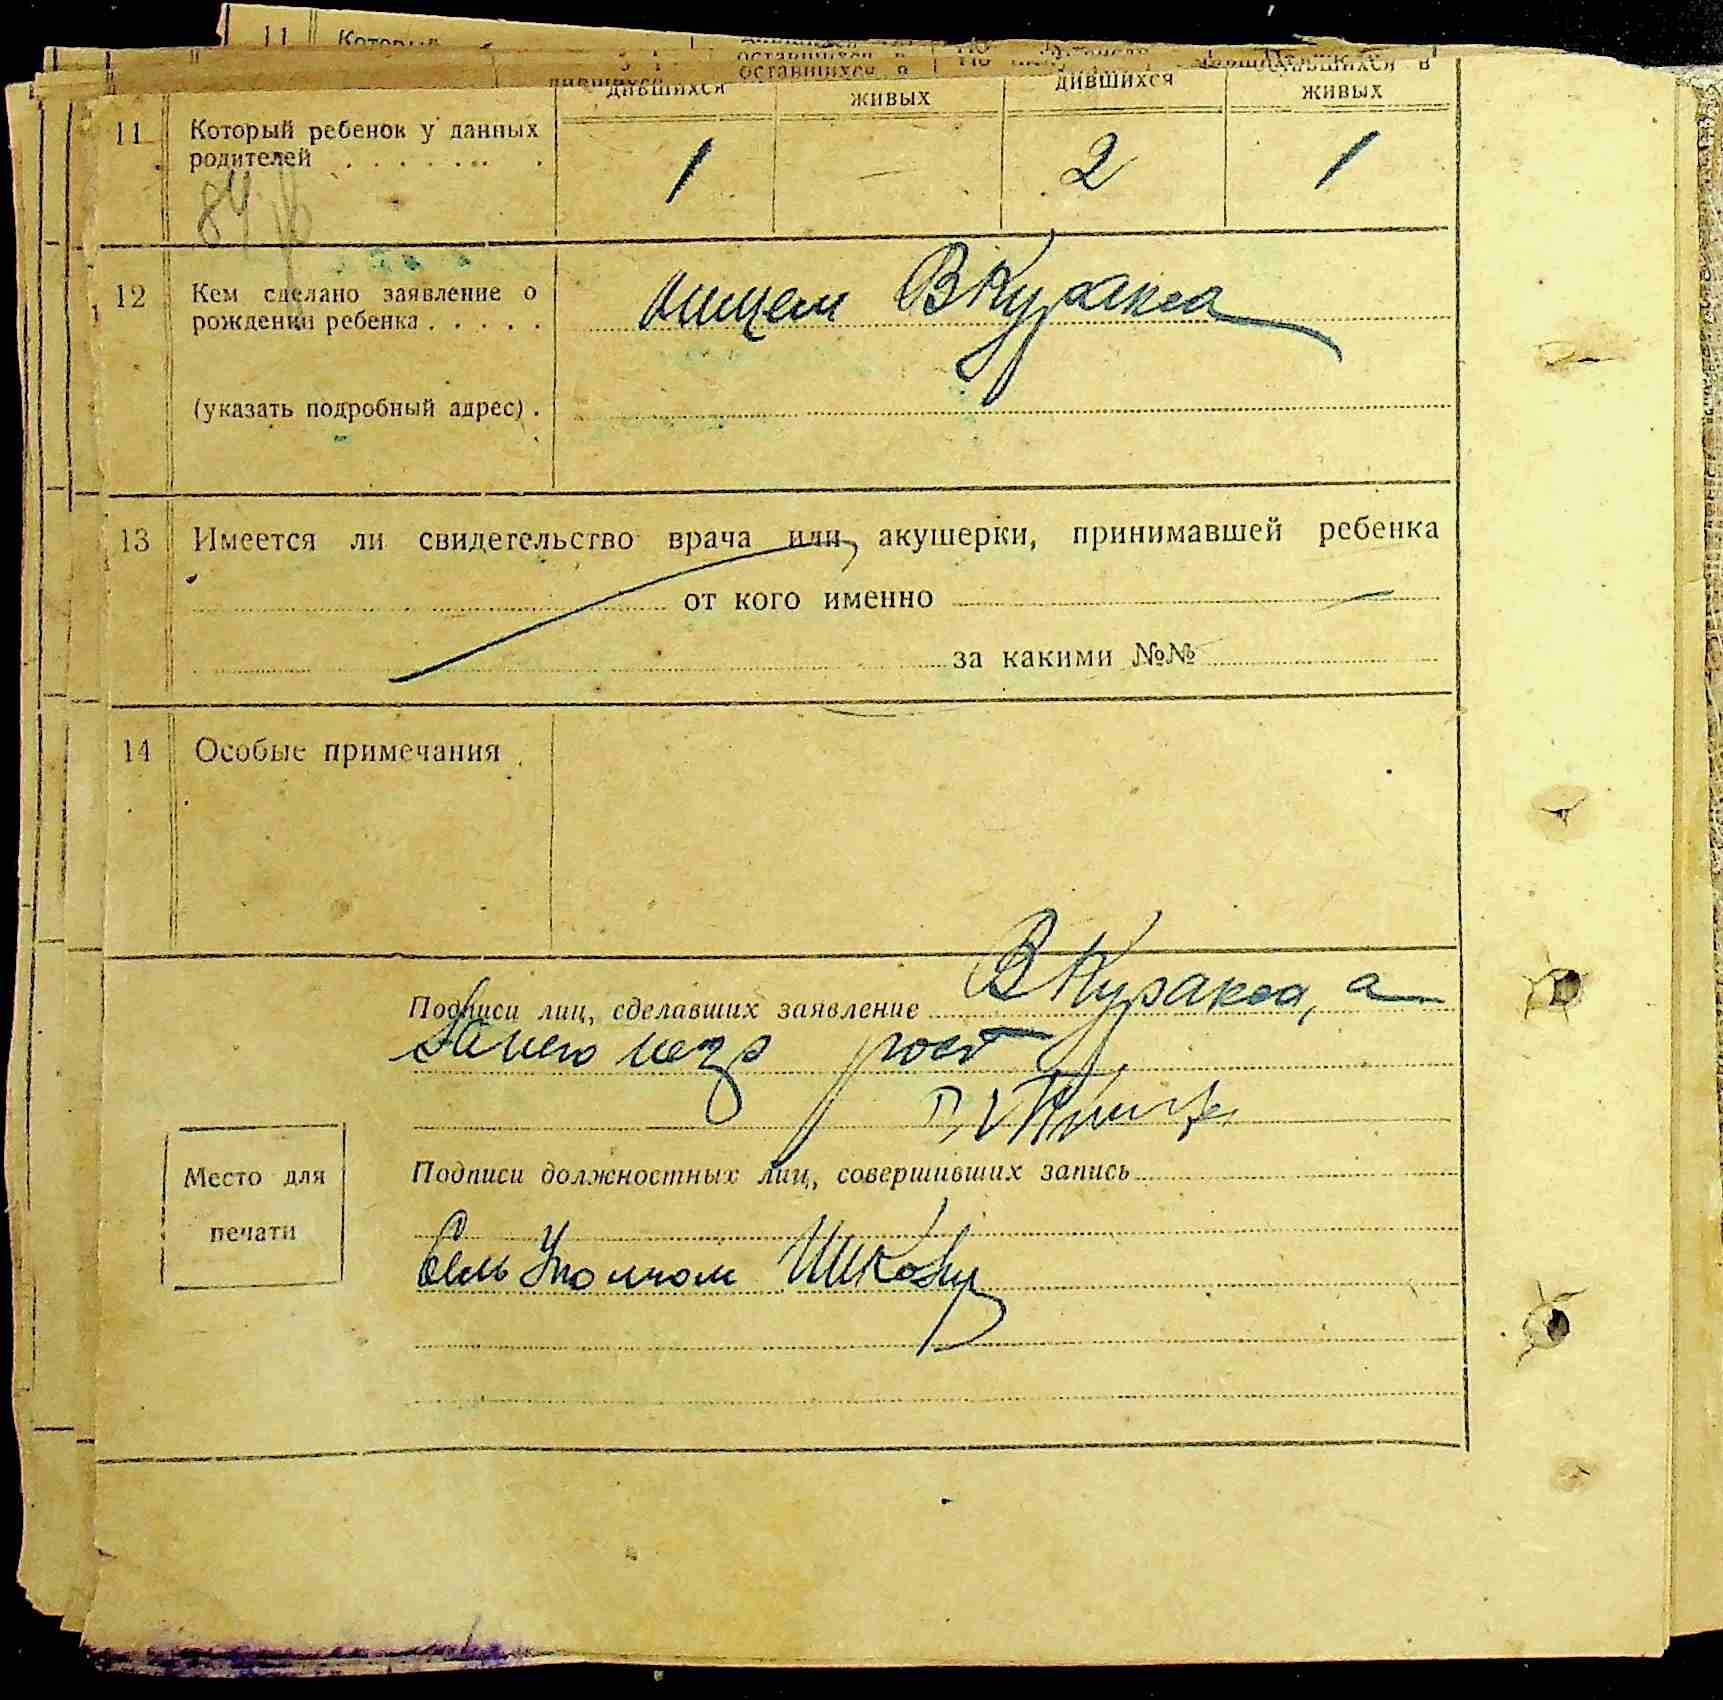 11 Который
оставшихся в
дившихся живых дившихся живых
11 Который ребенок у данных
родителей 1 — 2 1
84
12 Кем сделано заявление о
рождении ребенка отцем В Куракса
(указать подробный адрес)
13 Имеется ли свидетельство врача или акушерки, принимавшей ребенка
от кого именно —
за какими №№
14 Особые примечания
Подписи лиц, сделавших заявление В Куракса, а
за него негр рост
Подписи должностных лиц, совершивших запись
Место для
печати
Сель Уполном